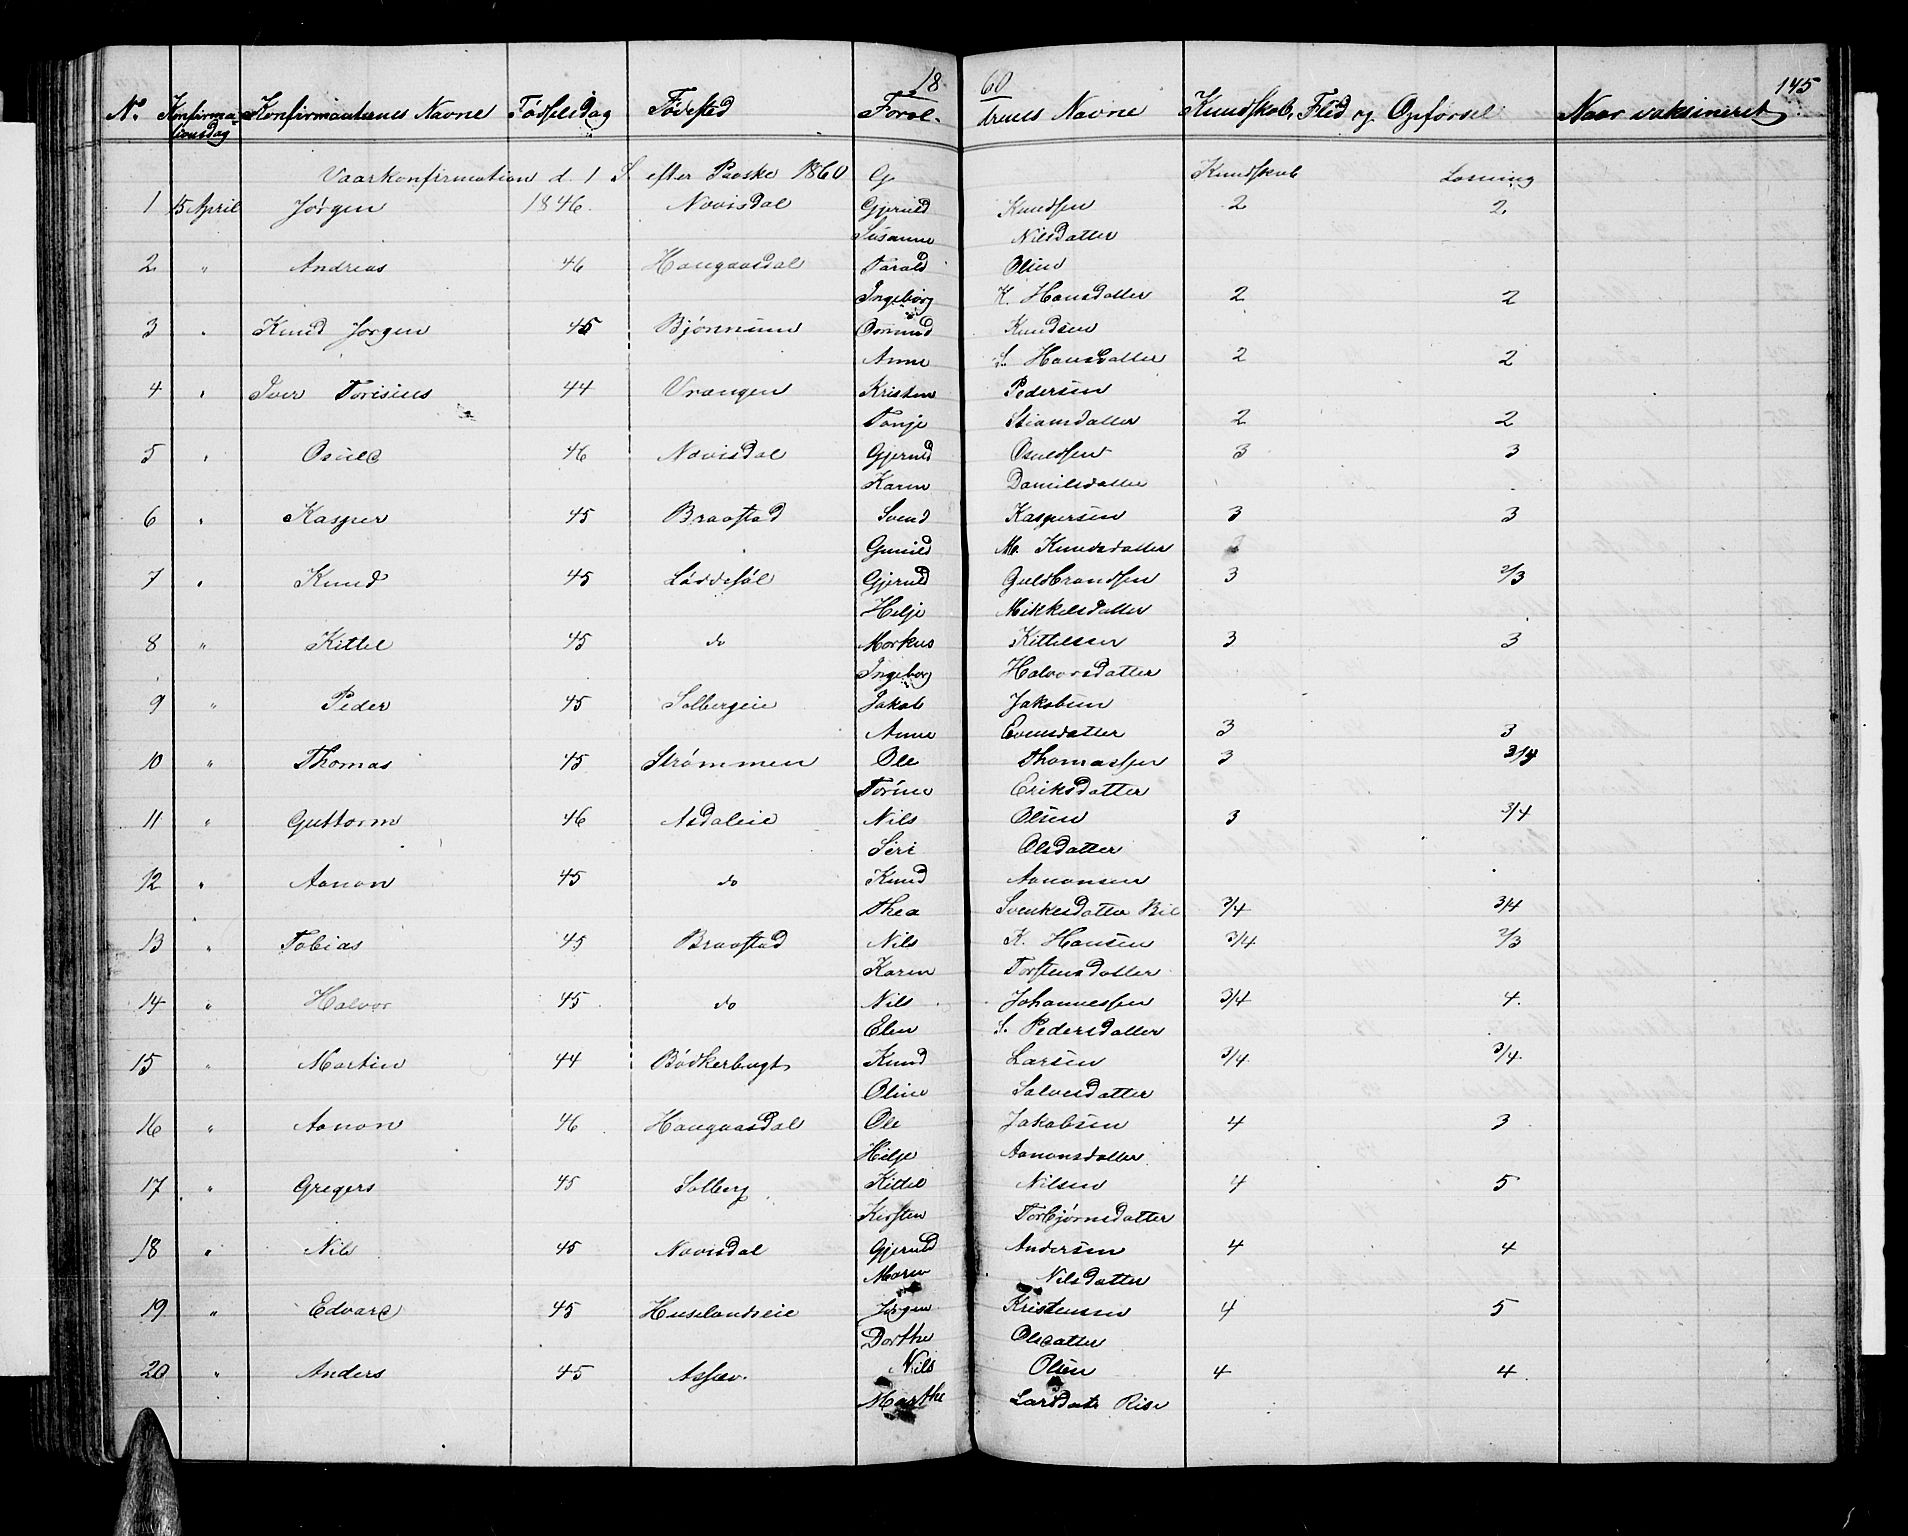 18 60 145
No. Konfirmationsdag Konfirmanternes Navne Fødselsdag Fødested Foræl- drenes Navne Kundskab, Flid og Opførsel Naar vaksineret
Vaarkonfirmation d. 1 S. efter Paaske 1860 G Kundskab Læsning
1 15 April Jørgen 1846. Navisdal Gjeruld Knudsen 2 2
Susanne Nilsdatter
2 " Andreas 46 Haugaasdal Tarald Olsen
Ingeborg K. Hansdatter 2 2
3 " Knud Jørgen 45 Bjønnum Osmund Knudsen
Anne S. Hansdatter 2 2
4 " Iver Torisius 44 Vrangen Kristen Pedersen
Tonje Stiansdatter 2 2
5 " Osuld 46 Navisdal Gjeruld Osuldsen 3 3
Karen Danielsdatter
6 " Kasper 45 Braastad Svend Kaspersen 3 3
Gunild M. Knudsdatter
7 " Knud 45 Løddesøl Gjeruld Guldbrandsen 3 2/3
Helje Mikkelsdatter
8 " Kittel 45 do Markus Kittelsen 3 3
Ingeborg Halvorsdatter
9 " Peder 45 Solbergeie Jakob Jakobsen
Anne Evensdatter 3 3
10 " Thomas 45 Strømmen Ole Thomassen 3 3/4
Torine Eriksdatter
11 " Guttorm 46 Asdaleie Nils Olsen 3 3/4
Siri Olsdatter
12 " Aanon 45 do Knud Aanonsen
Thea Svenkesdatter Bie 3/4 3/4
13 " Tobias 45 Braastad Nils K. Hansen 3/4 2/3
Karen Torstensdatter
14 " Halvor 45 do Nils Johannessen 3/4 4.
Elen S. Pedersdatter
15 " Martin 44 Bødkerbugt Knud Larsen 3/4 3/4
Oline Salvesdatter
16 " Aanon 46 Haugaasdal Ole Jakobsen 4 3
Helje Aanonsdatter
17 " Gregers 45 Solberg Kittel Nilsen 4 5
Kirsten Torbjørnsdatter
18 " Nils 45 Navisdal Gjeruld Andersen 4 4
Maren Nilsdatter
19 " Edvard 45 Huselandseie Jørgen Kristensen 4 5
Dorthe Olsdatter
20 " Anders 45 Assæv. Nils Olsen 4 4
Marthe Larsdatr Rise